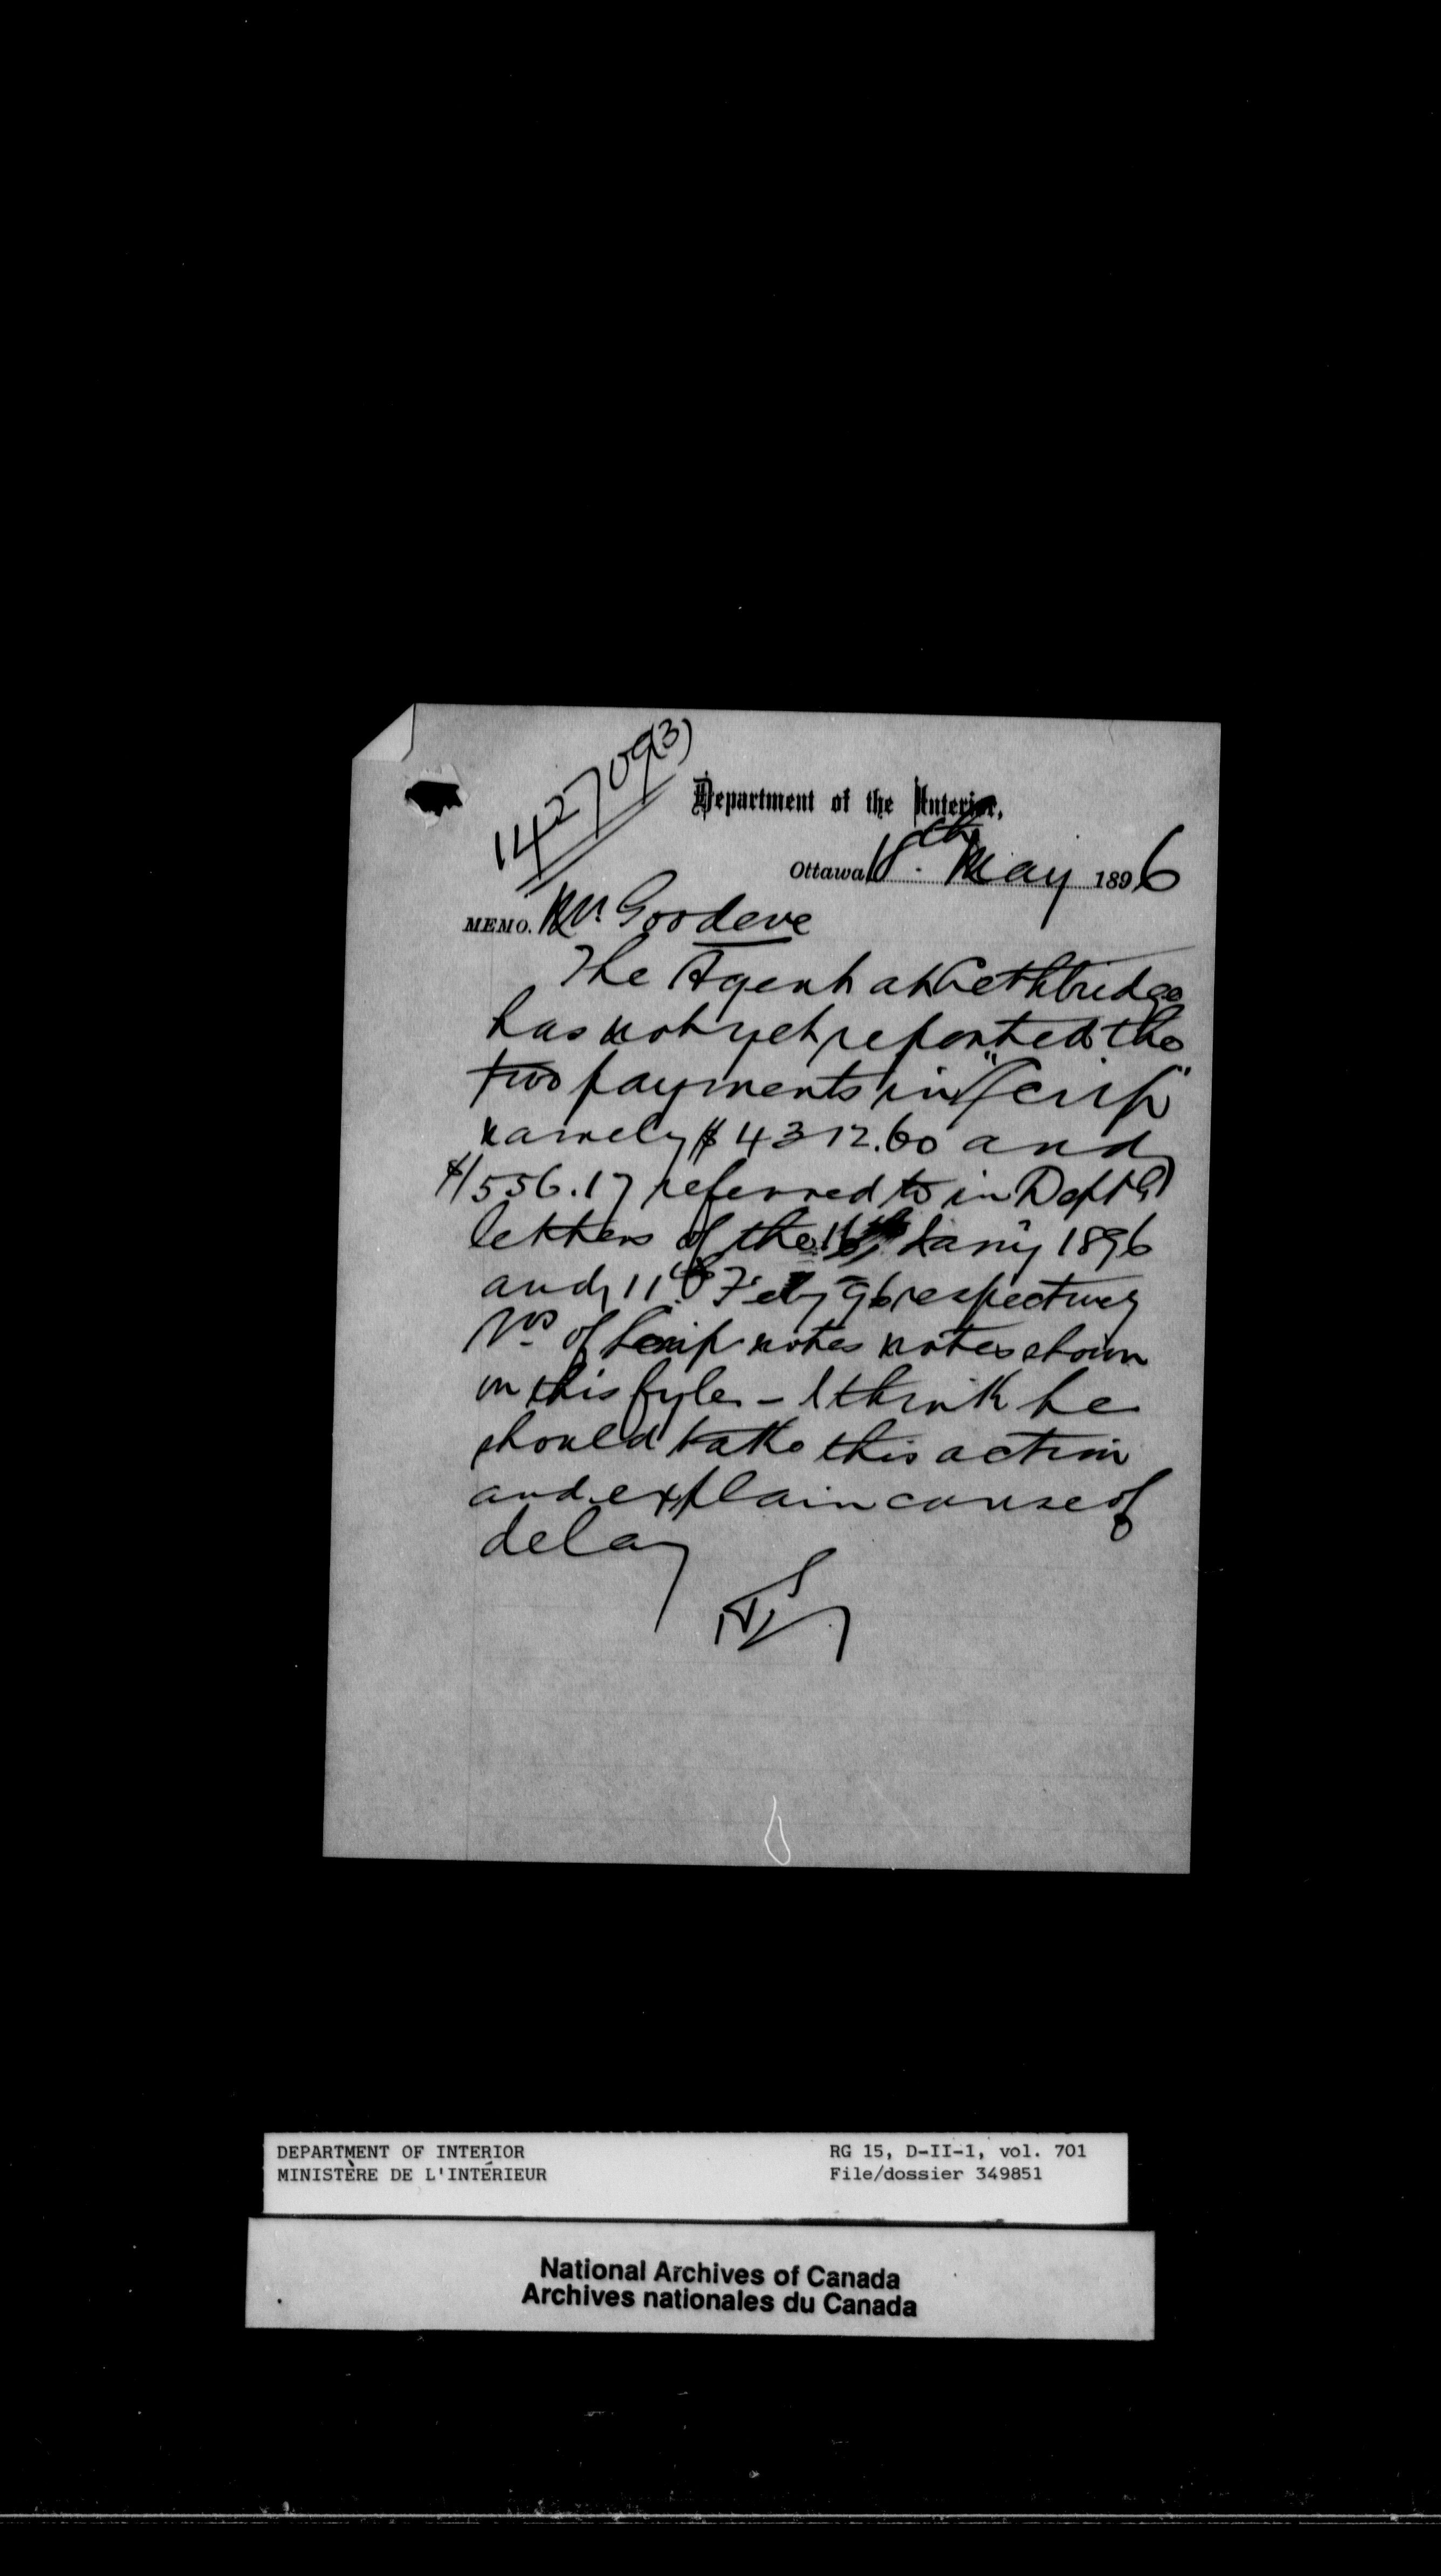 1427093)
Department of the Interior,
Ottawa 18th May 1896
MEMO. Mr. Goodeve
The Agent at Lethbridge
has not yet reported the
two payments in "Scrip"
namely $4312.60 and
$1556.17 referred to in Deptl
letters of the 16th Jany 1896
and 11th Feby 96 respectively
Nos of Scrip notes notes shown
on this fyle - I think he
should take this action
and explain cause of
delay
DEPARTMENT OF INTERIOR
MINISTÈRE DE L'INTÉRIEUR
RG 15, D-II-1, vol. 701
File/dossier 349851
National Archives of Canada
Archives nationales du Canada